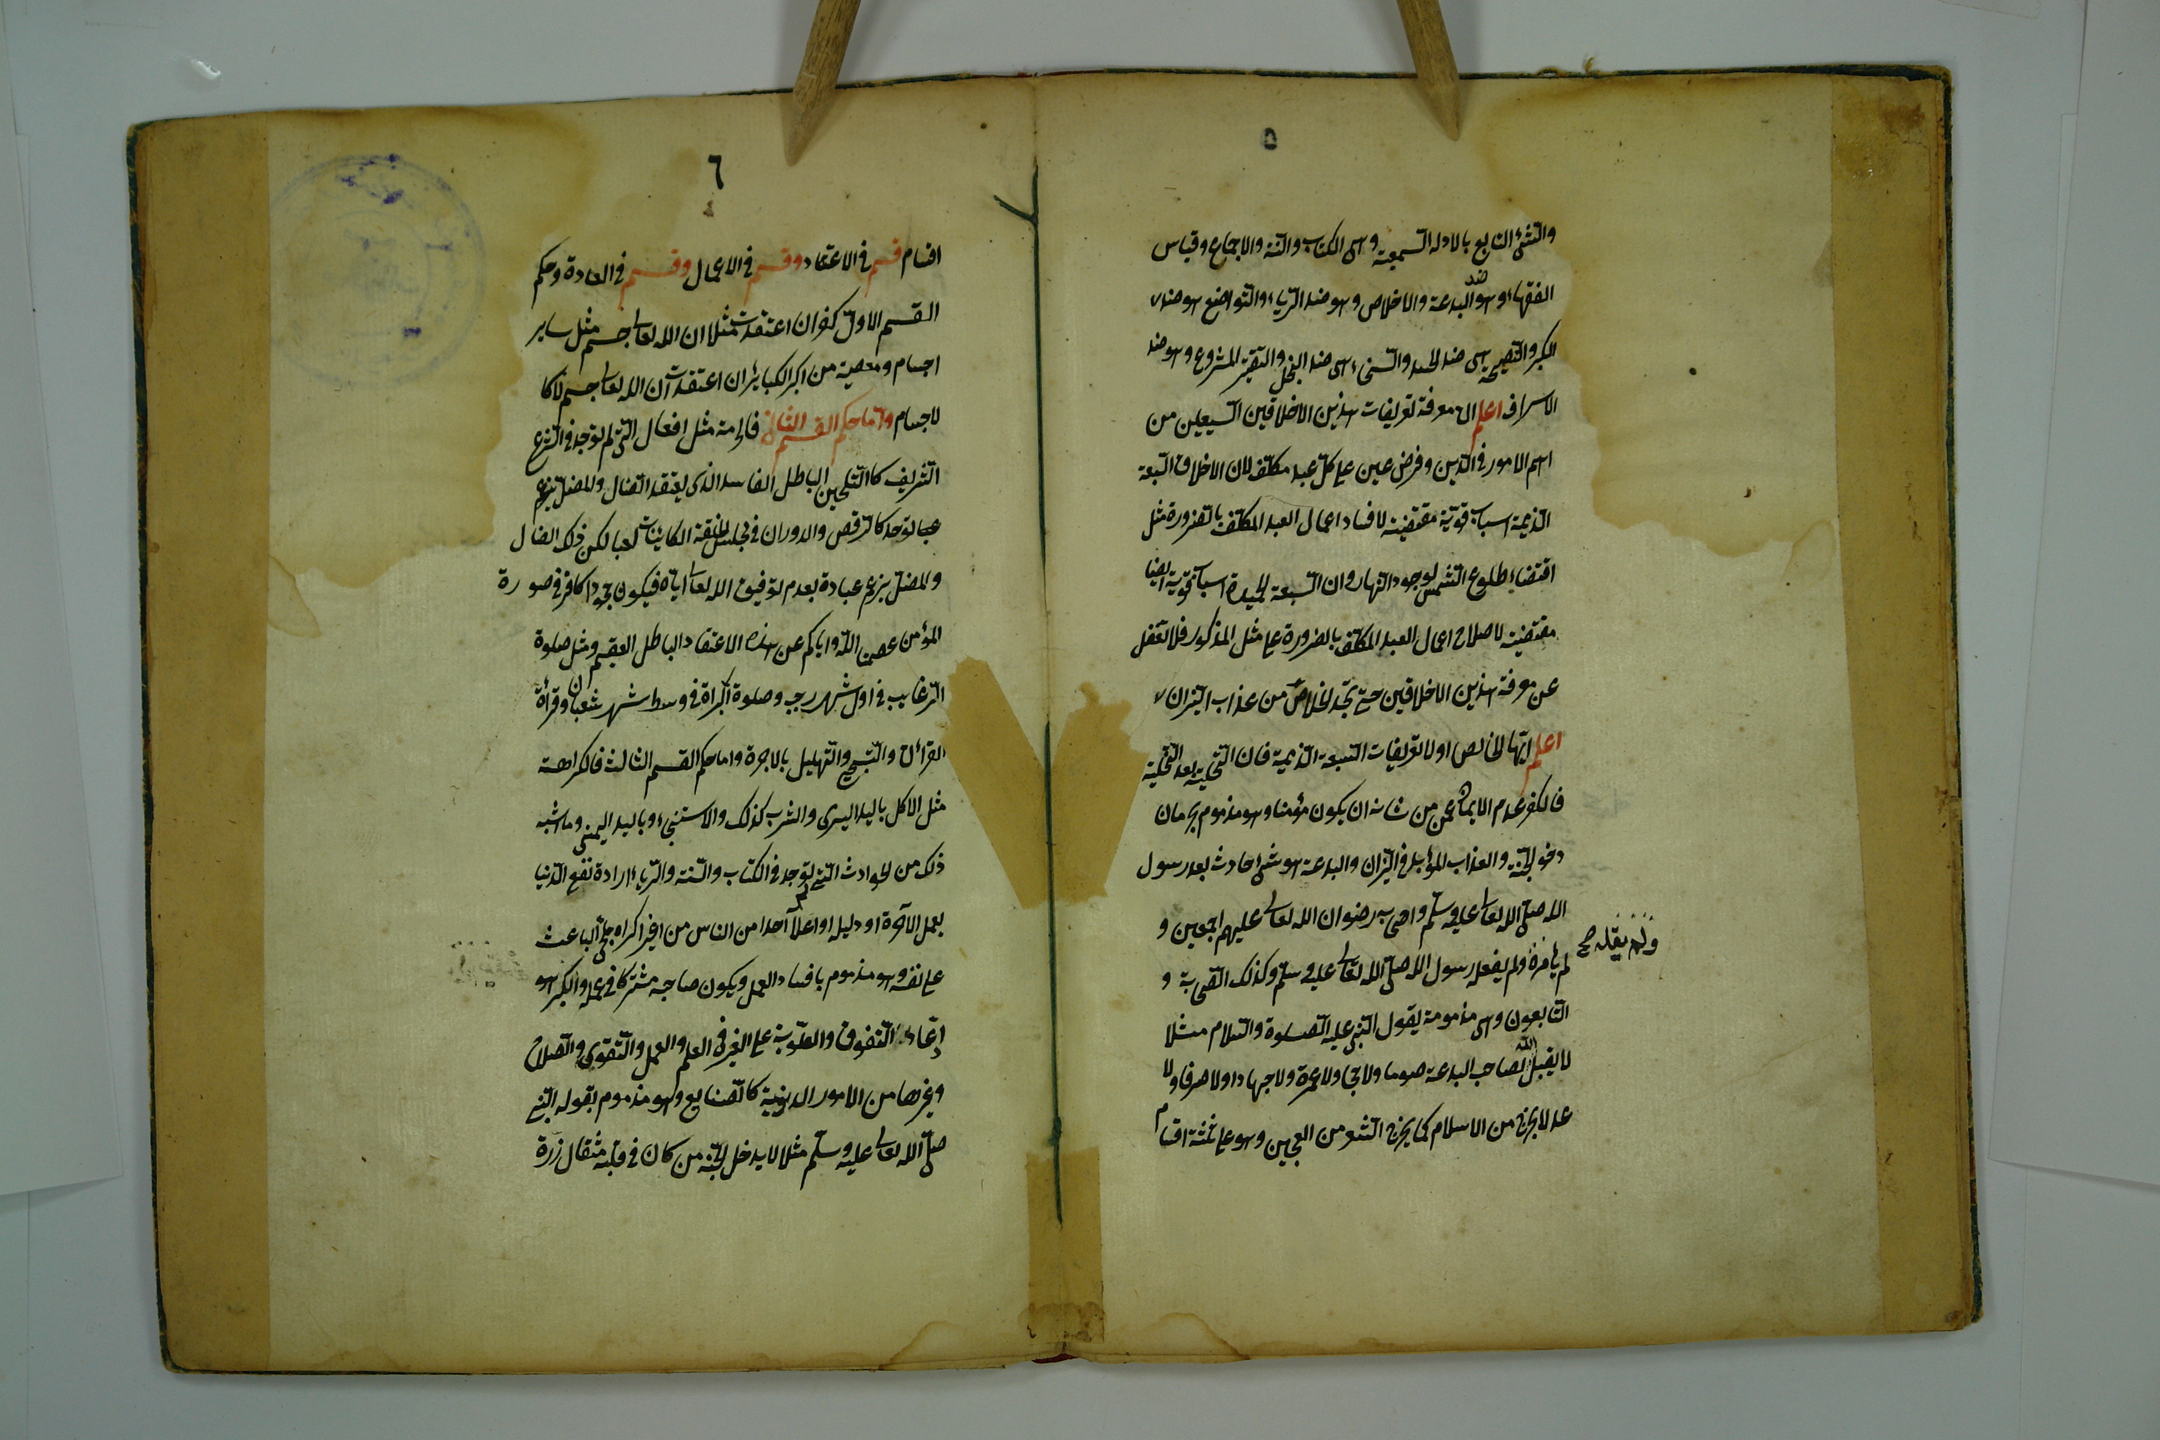 ٥
والشئ التابع بالادلة السمعية وهى الكتاب والسنة والاجماع وقياس
الفقهاء وهو ضد البدعة والاخلاص وهو ضد الرياء والتواضع هو ضد
الكبر والنصيحة هى ضد الحسد والسخاء هى ضد البخل والتقتير المشروع وهو ضد
الاسراف اعلم ان معرفة تعريفات هذين الاخلاقين السبعين من
اهم الامور فى الدين وفرض عين على كل عبد مكلف لان الاخلاق السبعة
الذميمة اسباب قوية مقتضية لافساد اعمال العبد المكلف بالضرورة مثل
اقتضاء طلوع الشمس لوجود النهار وان السبعة الحميدة اسباب قوية ايضا
مقتضية لاصلاح اعمال العبد المكلف بالضرورة على مثل المذكور فلا تغفل
عن معرفة هذين الاخلاقين حتى تجد الخلاص من عذاب النيران
اعلم ايها الخالص اولا تعريفات السبعة الذميمة فان التحلية بعد التخلية
فالكفر عدم الايمان عمن من شانه ان يكون مؤمنا وهو مذموم بحرمان
دخول الجنة والعذاب المؤبد فى النيران والبدعة هو شئ حادث بعد رسول
الله صلى الله تعالى عليه وسلم واصحابه رضوان الله تعالى عليهم اجمعين و
لم يامره ولم يفعله رسول الله صلى الله تعالى عليه وسلم وكذلك الصحابة و
ولم يقله صح
التابعون وهى مذمومة بقول النبى عليه الصلوة والسلام مثلا
لا يقبل الله لصاحب البدعة صوما ولا حجا ولا عمرة ولا جهادا ولا صرفا ولا
عدلا يخرج من الاسلام كما يخرج الشعر من العجين وهو على ثلثة اقسام
٦
اقسام قسم فى الاعتقاد وقسم فى الاعمال وقسم فى العادة وحكم
القسم الاول كفر ان اعتقدت مثلا ان الله تعالى جسم مثل ساير
اجسام ومعصية من اكبر الكبائر ان اعتقدت ان الله تعالى جسم لا كا
لاجسام واما حكم القسم الثانى فالحرمة مثل افعال التى لم توجد فى الشرع
الشريف كالتلحين الباطل الفاسد الذى يعتقد الضال والمضل بزعم
عبا لتوحد كالرقص والدوران فى مجلس الحلقة الكاينات لعبا لكن ذلك الضال
والمضل يزعم عبادة بعدم توفيق الله تعالى اياه فيكون جحودا كافر فى صورة
المؤمن عصمنا الله واياكم عن هذه الاعتقاد الباطل العقيم ومثل صلوة
الرغايب فى اول شهر رجب وصلوة البراة فى وسط شهر شعبان وقراة
القرآن والتسبيح والتهليل بالاجرة واما حكم القسم الثالث فالكراهة
مثل الاكل باليد اليسرى والشرب كذلك والاستنجاء وباليد اليمنى وما اشبه
ذلك من الحوادث التى لم توجد فى الكتاب والسنة والرياء ارادة نفع الدنيا
بعمل الآخرة او دليله او اعلام احدا من الناس من غير اكراه ملجئ الباعث
على نفسه وهو مذموم بافساد العمل ويكون صاحبه مشتركا فى عمله والكبر هو
ادعاء التفوق والعلوية على الغير فى العلم والعمل والتقوى والصلاح
وغيرها من الامور الدينية كالصنايع وهو مذموم بقوله النبى
صلى الله تعالى عليه وسلم مثلا لا يدخل الجنة من كان فى قلبه مثقال زرة